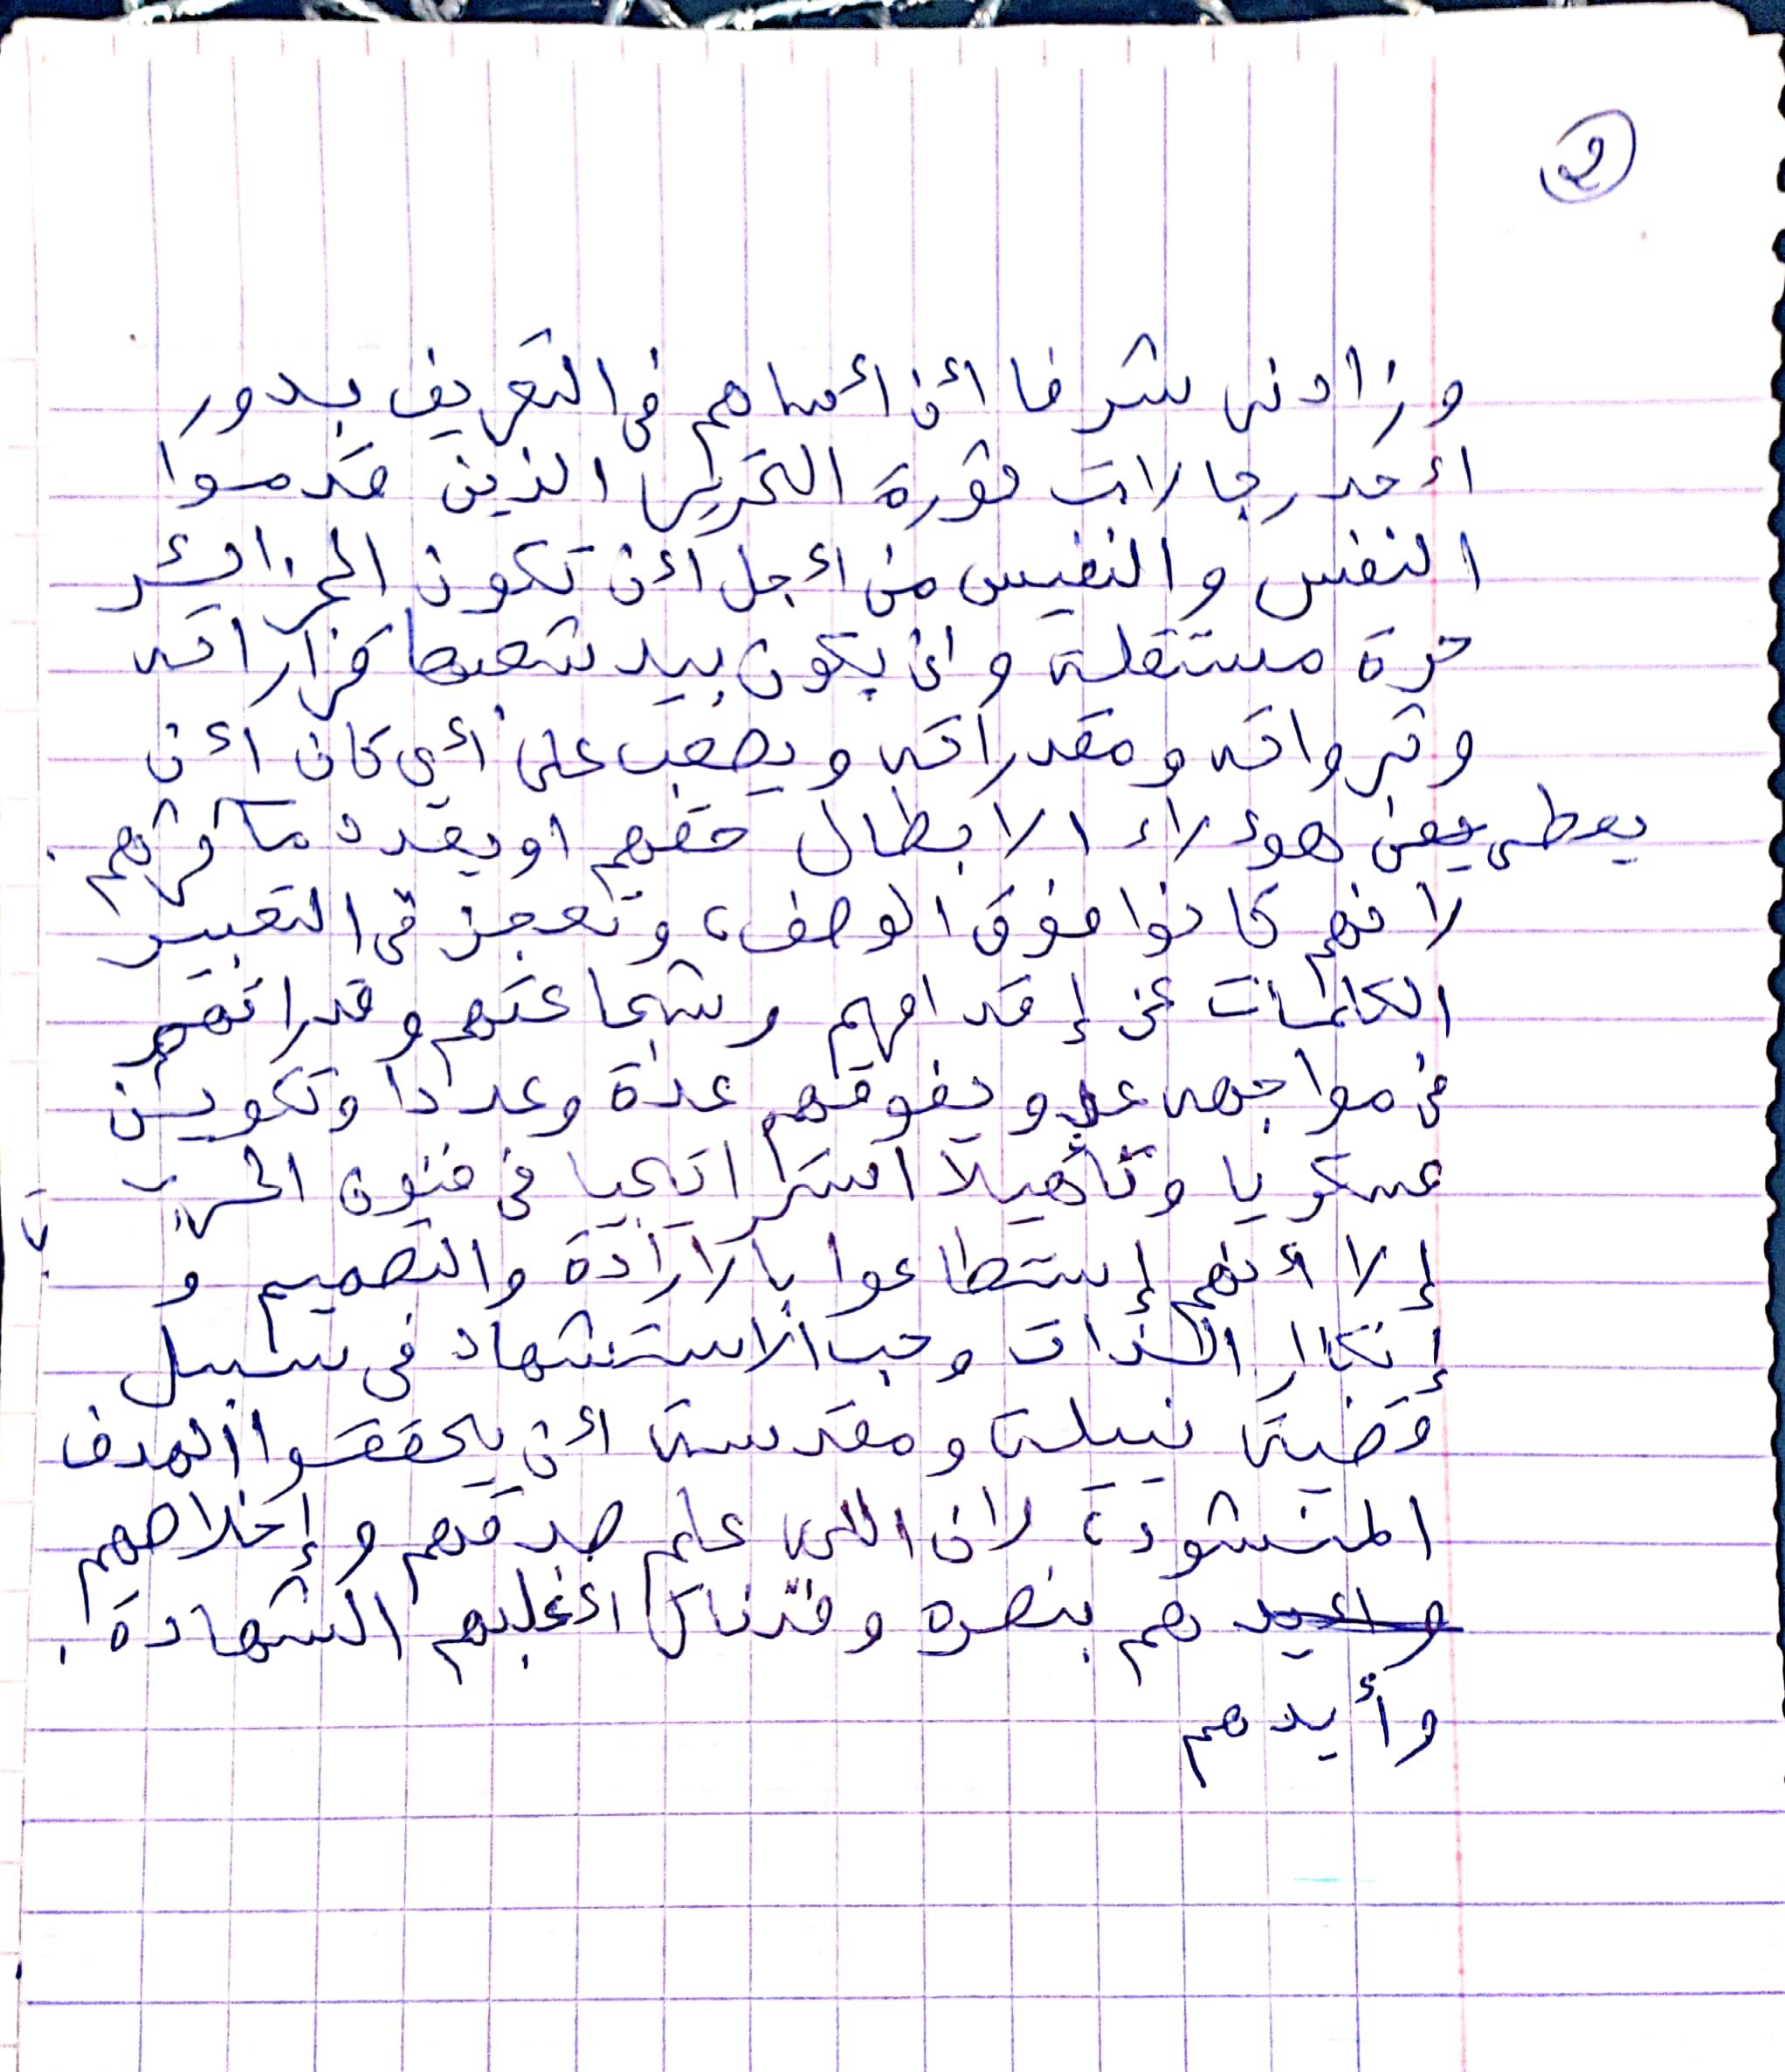 2
وزادني شرفا أن أساهم في التعريف بدور
أحد رجالات ثورة التحرير الذين قدموا
النفس والنفيس من أجل أن تكون الجزائر
حرة مستقلة وان يكون بيد شعبها قراراته
وثرواته ومقدراته ويصعب على أي كان أن
يعطي هؤلاء الابطال حقهم او يعدد مآثرهم.
لانهم كانوا فوق الوصف، وتعجز في التعبير
الكلمات عن إقدامهم وشجاعتهم وقدراتهم
في مواجهه عدو يفوقهم عدة وعددا وتكوين
عسكريا وتأهيلا استراتيجيا في فنون الحرب
إلا أنهم إستطاعوا بالارادة والتصميم و
إنكار الذات وحب الاستشهاد في سبيل
قضية نبيلة ومقدسة أن يحققوا الهدف
المنشود، لان الله علم صدقهم وإخلاصهم
وايدهم بنصره وقد نال أغلبهم الشهادة.
وأيدهم